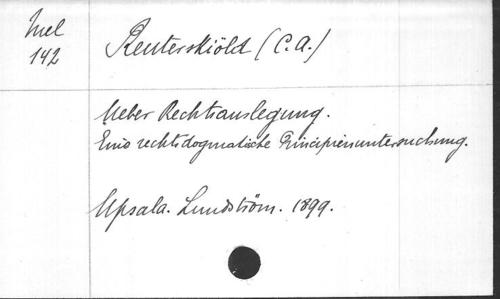 Mel
142
Reuterskiöld (C.A.)
Ueber Rechtsauslegung.
Eine rechtsdogmatische Principienuntersuchung.
Upsala. Lundström. 1899.